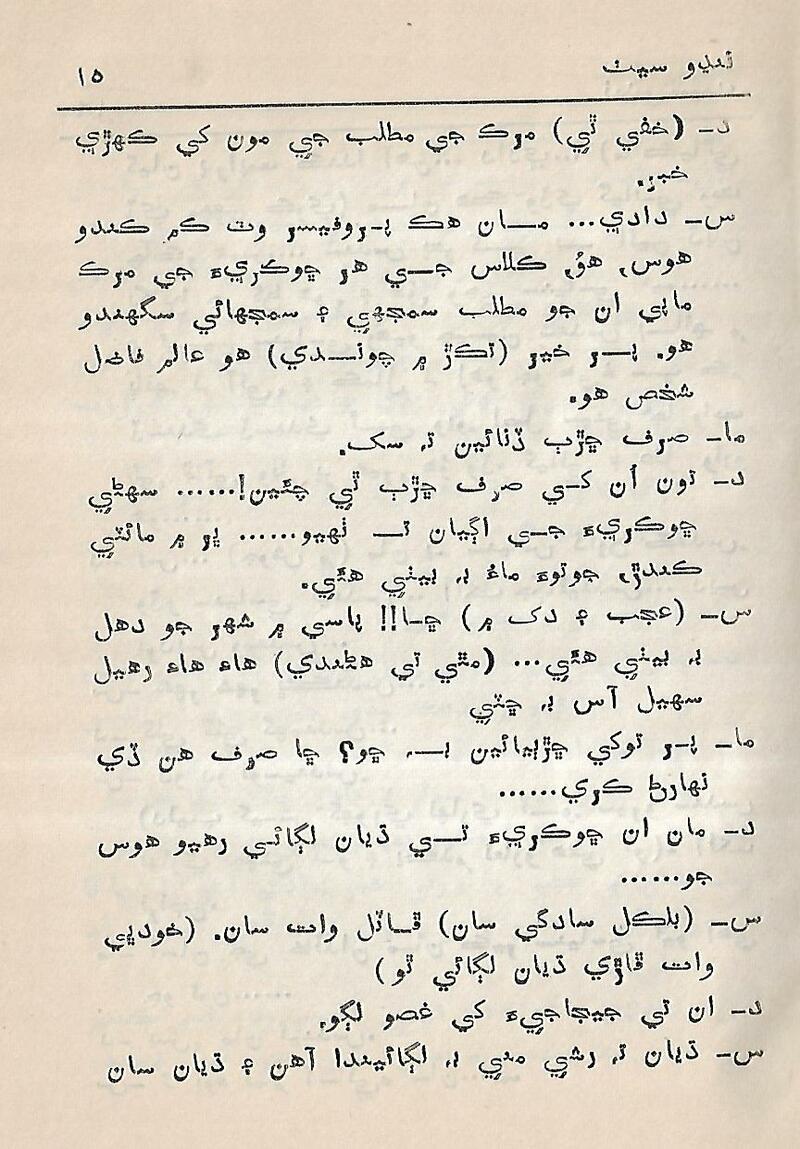 ننڍو سيٺ ١٥
د– (خفي ٿي) مرڪ جي مطلب جي مون کي ڪهڙي
خبر.
س– دادي... مان هڪ پروفيسر وٽ ڪم ڪندو
هوس، هوُ، ڪلاس جي هر ڇوڪريءَ جي مرڪ
ماپي ان جو مطلب سمجهي ۽ سمجهائي سگهندو
هو. پر خير (تڪڙ ۾ چوندي) هو عالم فاضل
شخص هو.
ما– صرف ڇڙٻ ڏنائين ته سڪ.
د– تون اُن کي صرف ڇڙٻ ٿي چئين!...... سهڻي
ڇوڪريءَ جي اڳيان ته ٺهيو...... پر ۾ مائٽي
ڪندڙ، جوتوءَ ماءُ به بيٺي هئي.
س– (عجب ۽ دک ۾) ڇا!! پاسي ۾ شهر جو دهل
به بيٺي هئي... (مٿي تي هڻندي) هاءِ هاءِ رهيل
سهيل آس به ڇٽي
ما– پر توکي ڇڙٻيائين به، ڇو؟ ڇا صرف هن ڏي
نهارڻ ڪري......
د– مان ان ڇوڪريءَ تي ڌيان لڳائي رهيو هوس
جو......
س– (بلڪل سادگي سان) ڦاٽل وات سان. (خودبي
وات ڦاڙي ڌيان لڳائي ٿو)
د– ان تي جيجاجيءَ کي غصو لڳو.
س– ڌيان ته رشي مني به لڳائيندا آهن ۽ ڌيان سان